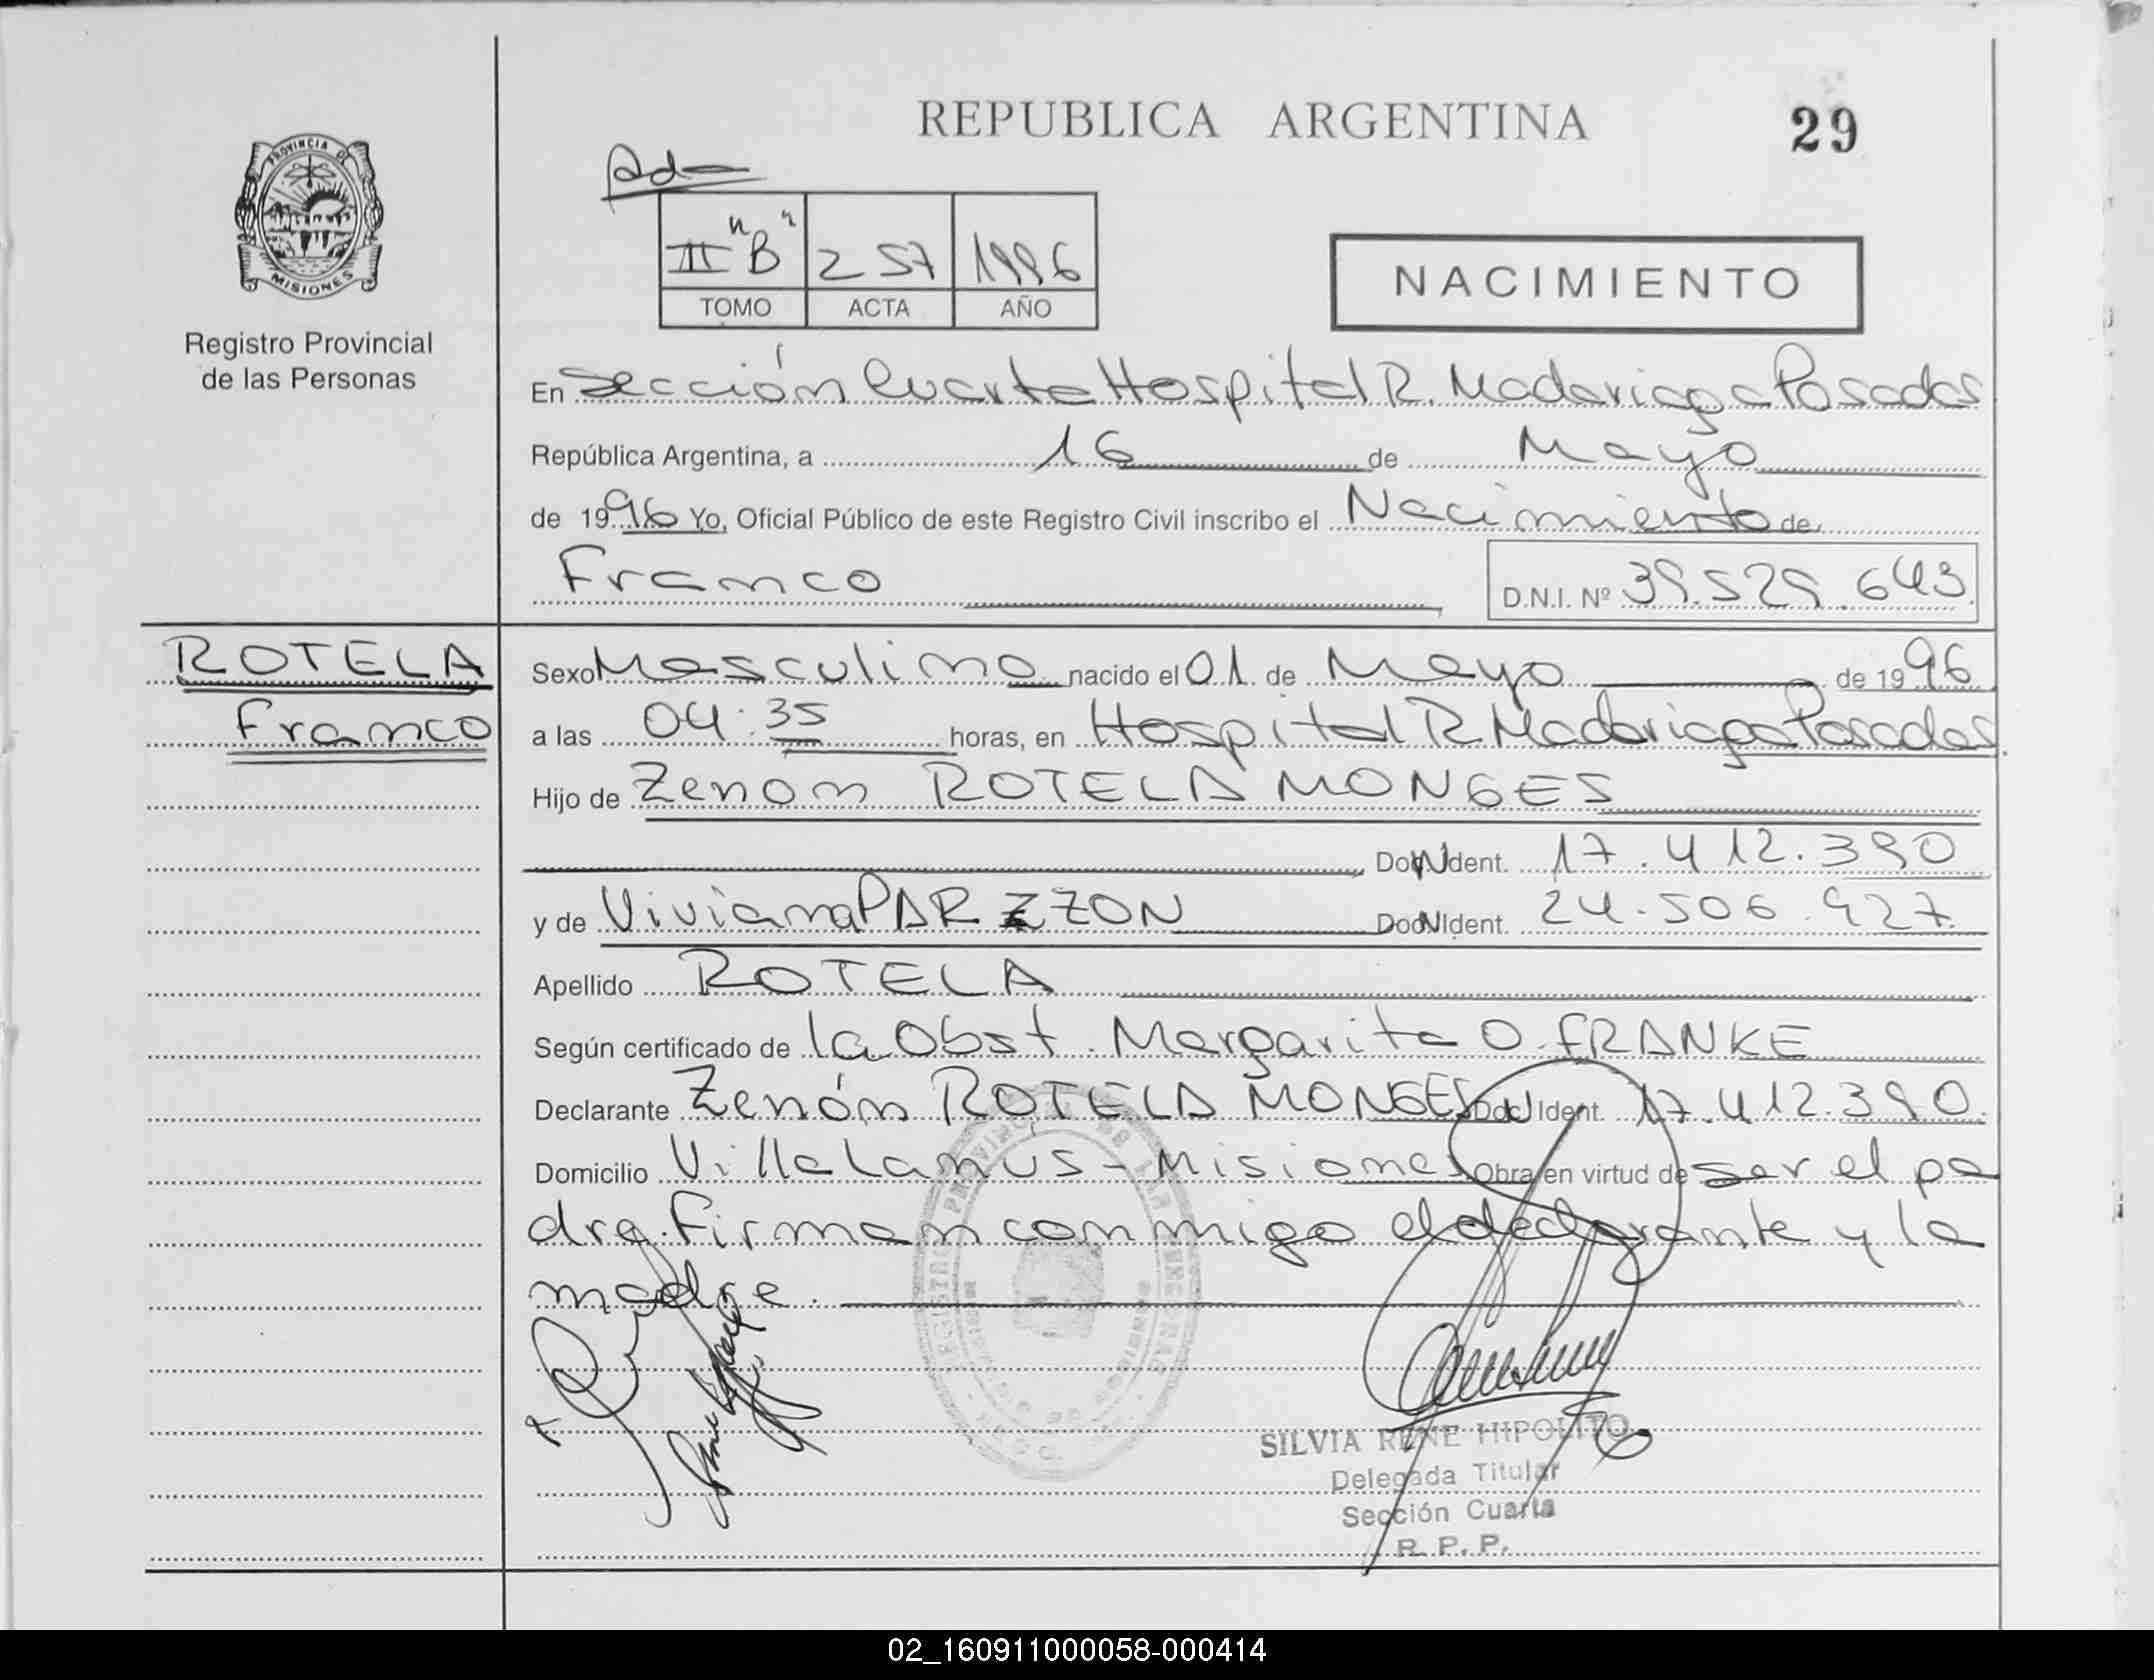 REPUBLICA ARGENTINA
29
PROVINCIA DE
MISIONES
Registro Provincial
de las Personas
II "B" 257 1996
TOMO ACTA AÑO
NACIMIENTO
En Sección Cuarta Hospital R. Madariaga Posadas
República Argentina, a 16 de Mayo
de 1996 Yo, Oficial Público de este Registro Civil inscribo el Nacimiento de
Franco D.N.I. Nº 39.529.643
ROTELA
Franco
Sexo Masculino nacido el 01 de Mayo de 1996
a las 04:35 horas, en Hospital R. Madariaga Posadas
Hijo de Zenon ROTELA MONGES
Doc. Ident. 17.412.390
y de Viviana Doc. Ident. 24.506.927
Apellido ROTELA
Según certificado de la Obst. Margarita O. FRANKE
Declarante Zenón ROTELA MONGES Doc. Ident. 17.412.390
Domicilio Villa Lanus - Misiones Obra en virtud de ser el pa
dre. Firman conmigo el declarante y la
madre.
SILVIA RENE HIPOLITO
Delegada Titular
Sección Cuarta
R. P. P.
02_160911000058-000414